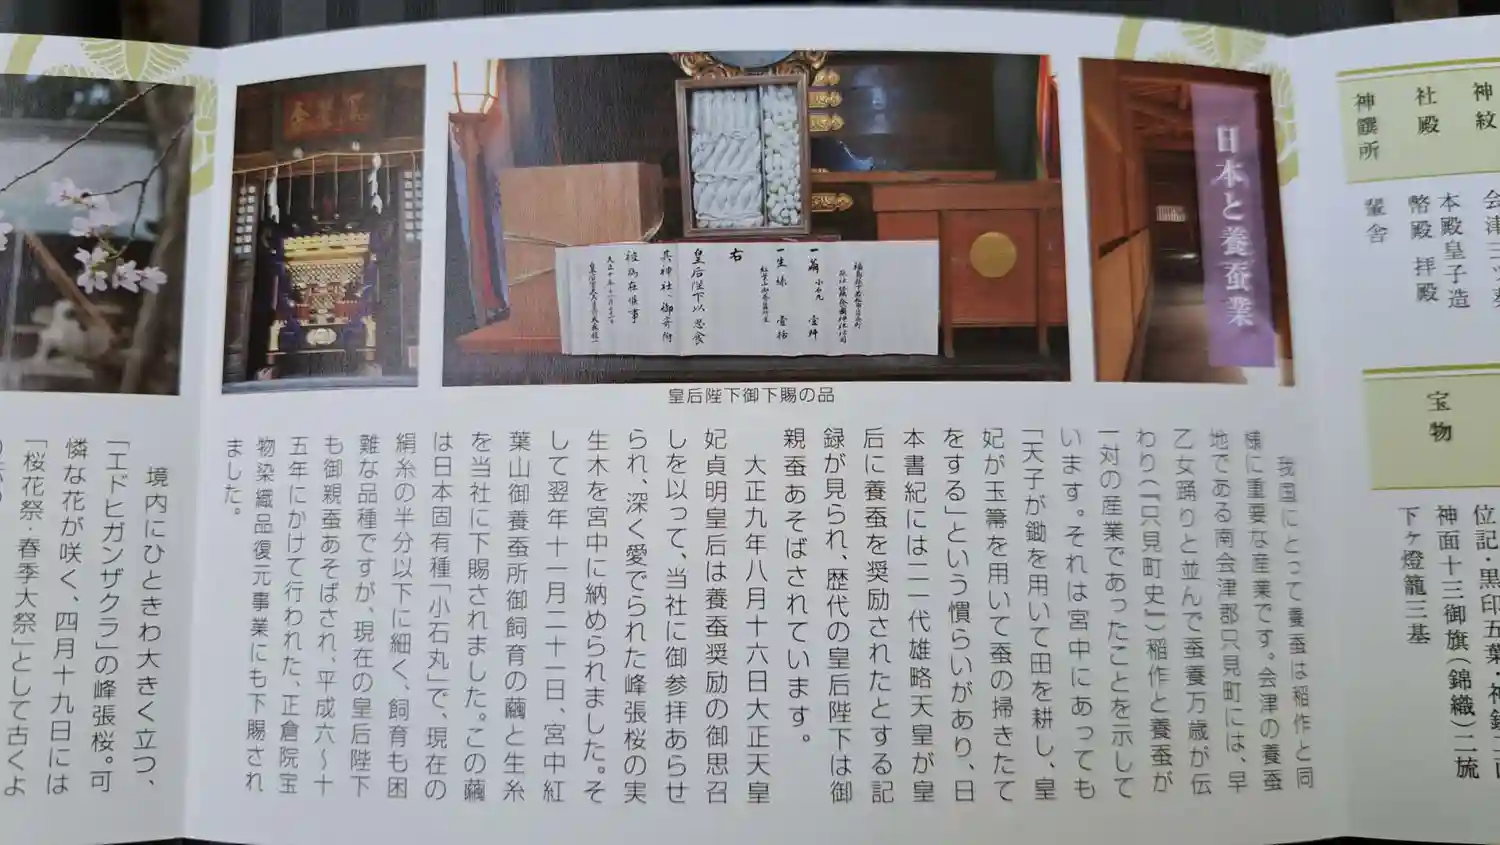 神紋
社殿
神饌所
会津三ツ葵
本殿皇子造
幣殿 拝殿
輦舎
宝物
位記・黒印五葉・神鏡二面
神面十三御旗(錦織)二旒
下ヶ燈籠三基
日本と養蚕業
一繭 小石丸 壹舛
一生絲 壹括
右
皇后陛下以思食
其神社へ御寄附
被為在候事
皇后陛下御下賜の品
我国にとって養蚕は稲作と同
様に重要な産業です。会津の養蚕
地である南会津郡只見町には、早
乙女踊りと並んで蚕養万歳が伝
わり(『只見町史』)稲作と養蚕が
一対の産業であったことを示して
います。それは宮中にあっても
「天子が鋤を用いて田を耕し、皇
妃が玉箒を用いて蚕の掃きたて
をする」という慣らいがあり、日
本書紀には二一代雄略天皇が皇
后に養蚕を奨励されたとする記
録が見られ、歴代の皇后陛下は御
親蚕あそばされています。
大正九年八月十六日大正天皇
妃貞明皇后は養蚕奨励の御思召
しを以って、当社に御参拝あらせ
られ、深く愛でられた峰張桜の実
生木を宮中に納められました。そ
して翌年十一月二十一日、宮中紅
葉山御養蚕所御飼育の繭と生糸
を当社に下賜されました。この繭
は日本固有種「小石丸」で、現在の
絹糸の半分以下に細く、飼育も困
難な品種ですが、現在の皇后陛下
も御親蚕あそばされ、平成六～十
五年にかけて行われた、正倉院宝
物染織品復元事業にも下賜され
ました。
境内にひときわ大きく立つ、
「エドヒガンザクラ」の峰張桜。可
憐な花が咲く、四月十九日には
「桜花祭・春季大祭」として古くよ